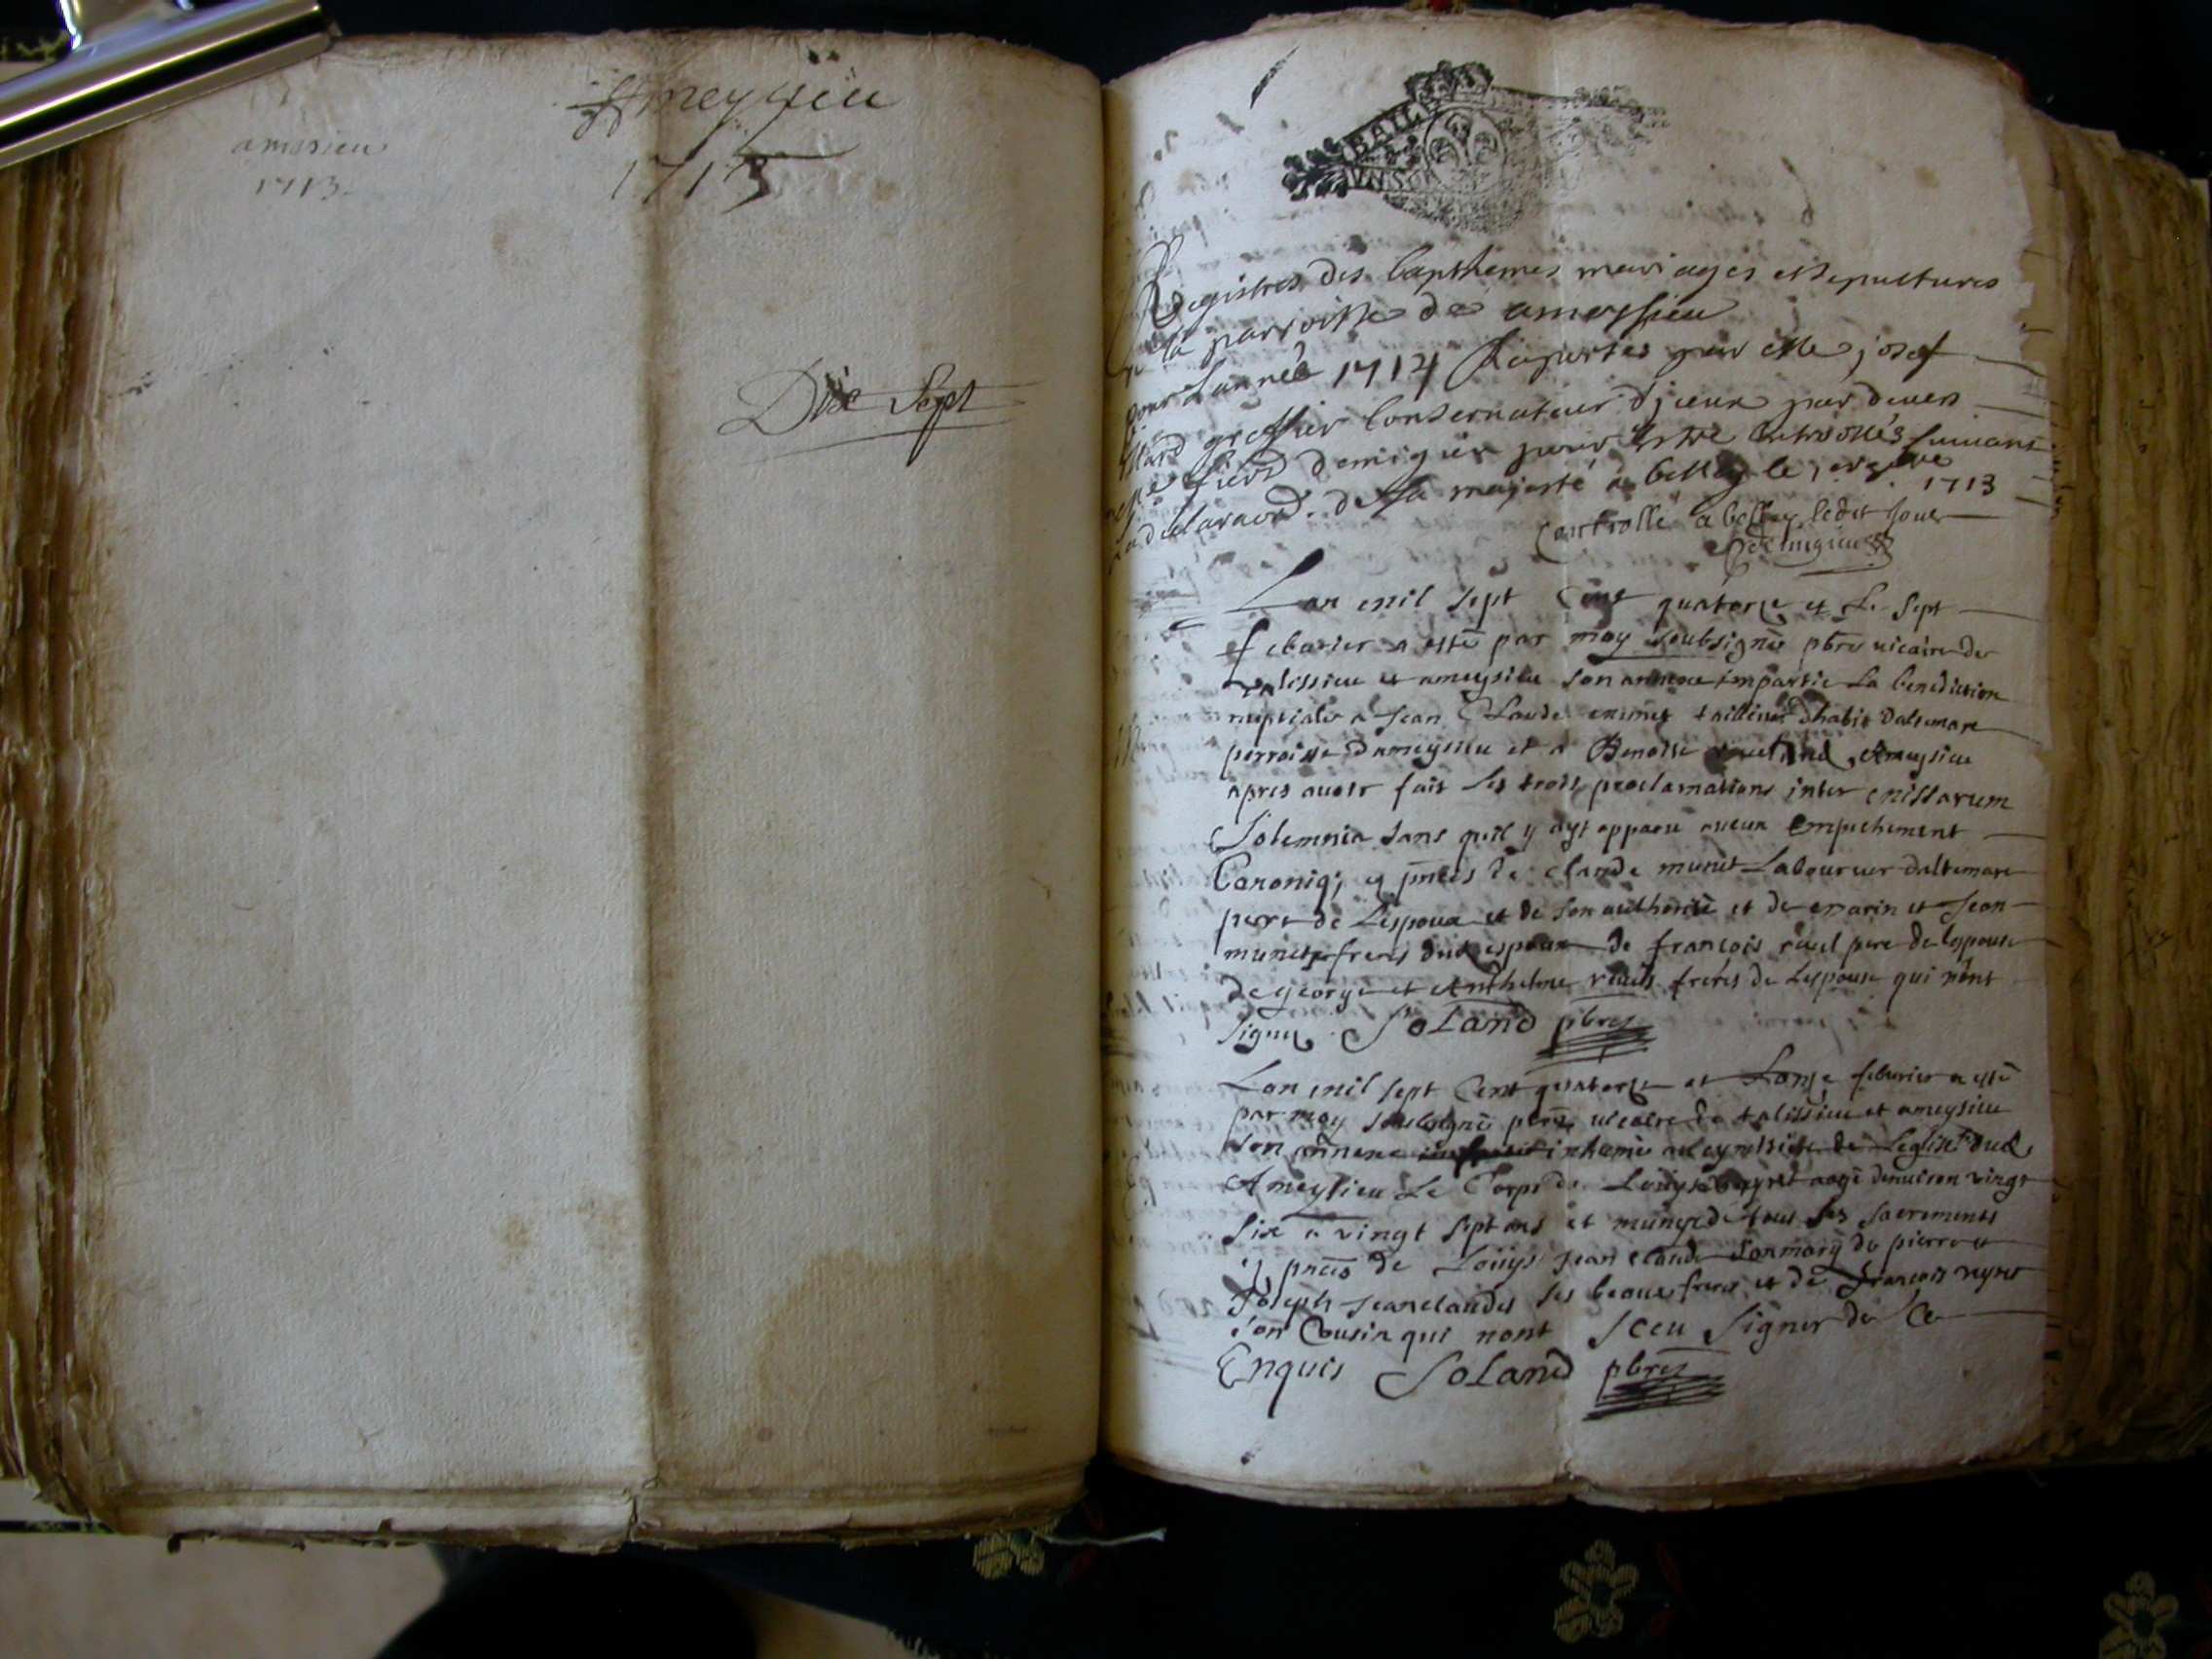 Ameysieu
1713
amesieu
1713
Dix Sept
BAILL
Registres des bapthemes mariages et sepultures
la parroisse de ameyssieu
pour Lannée 1714 par Me josef
greffier Conservateur djceux par devers
demigieu pour Estre Controllés suivant
de sa majesté a belley le 1713
Controllé a belley ledit Jour
Demigieu
Lan mil sept Cent quatorze et Le sept
febvrier a esté par moy soubsigné pbre vicaire de
talissieu et ameysieu son annexe impartie La benediction
nuptiale a Jean Claude munet tailleur dhabit Daltemare
perroisse Dameysieu et a Benoite Ameysieu
apres avoir fait Les trois proclamations inter missarum
Solemnia sans quil y ayt apparu aucun Empechement
Canoniq; e pnces de Claude munet Laboureur daltemare
pere de Lespoux et de son authorité et de marin et Jean
munet freres dud espoux de françois ruel pere de lespouse
de george et Anthelme ruels freres de Lespouse qui nont
signez Soland pbre
Lan mil sept Cent quatorze et Lonze febvrier a esté
par moy soubsigné pbre vicaire de talissieu et ameysieu
son annexe inhumé au cymetiere de Leglise dud
Ameysieu Le Corps de Louyse aagé denviron vingt
six a vingt sept ans et munye de tous Les sacrements
e pnces de Louys Jean claude son mary de pierre et
Joseph Jeanclaudes ses beaux freres et de françois
son Cousin qui nont sceu signer de Ce
Enquis Soland pbre